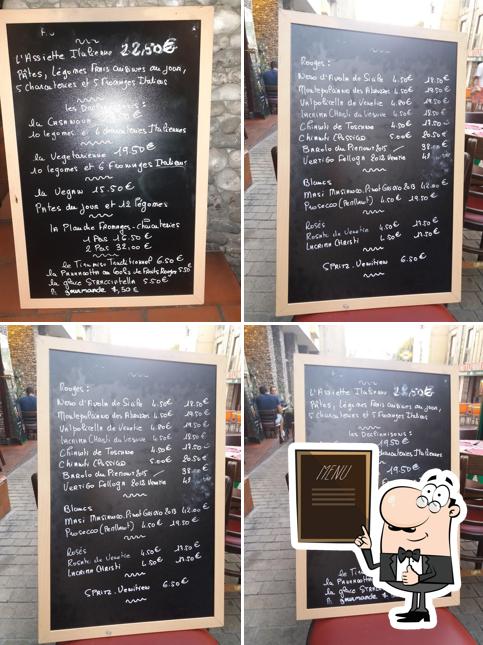 L'Assiette Italienne 22,50€
Pâtes, Légumes frais cuisinés du jour,
5 charcuteries et 5 fromages Italiens
les Déclinaisons :
10 légumes et 6 charcuteries Italiennes
la Végétarienne 19.50€
10 légumes et 6 fromages Italiens
la Vegan 15.50€
Pates du jour et 12 légumes
la Planche Fromages-charcuteries
1 Pers 16.50€
2 Pers 32,00€
le Tiramisu Traditionnel 6.50€
la Pannacotta au Coulis de Fruits Rouges 5.50
la glace STRACCIATELLA 5.50€
gourmande 7,50€
Rouges :
Nero d'Avola de Sicile 4.50€ 18.50€
Montepulciano des Abruzzes 4.50€ 19.50€
Valpolicella de Venetie 4.80€ 19.50€
Lacrima Christi du Vesuve 4.50€ 18.50€
Chianti de Toscane 4.50€ 19.50€
Chianti Classico 5.00€ 20.50€
Barolo du Piemont 2015 38
Vertigo Felluga 2013 Venetie
Blancs
Masi Masianco. Pinot Grigio 2013 42.00€
Prosecco (Petillant) 4.50€ 19.50€
Rosés
Rosato du Venetie 4.50€ 17.50€
Lacrima Christi 4.50€ 17.50€
SPRITZ. Venitien 6.50€
Rouges :
Nero d'Avola de Sicile 4.50€ 18.50€
Montepulciano des Abruzzes 4.50€ 19.50€
Valpolicella de Venetie 4.80€ 19.50€
Lacrima Christi du Vesuve 4.50€ 18.50€
Chianti de Toscane 4.50€ 19.50€
Chianti Classico 5.00€ 20.50€
Barolo du Piemont 2015 38
Vertigo Felluga 2013 Venetie
Blancs
Masi Masianco. Pinot Grigio 2013 42.00€
Prosecco (Petillant) 4.50€ 19.50€
Rosés
Rosato du Venetie 4.50€ 17.50€
Lacrima Christi 4.50€ 17.50€
SPRITZ. Venitien 6.50€
L'Assiette Italienne 22,50€
Pâtes, Légumes frais cuisinés du jour,
5 charcuteries et 5 fromages Italiens
les Déclinaisons :
19.50€
charcuteries Italiennes
19.50€
MENU